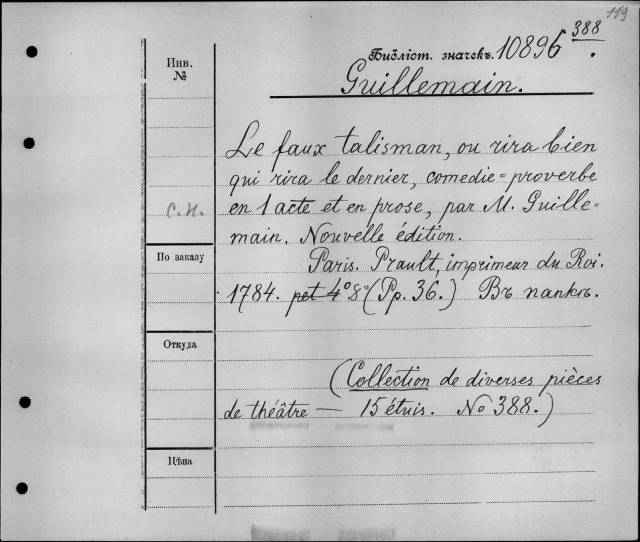 119
Инв.
№
Библіот. значекъ. 10896 388.
Guillemain.
Le faux talisman, ou rira bien
qui rira le dernier, comedie=proverbe
en 1 acte et en prose, par M. Guille=
main. Nouvelle édition.
С.Н.
По заказу
Paris. Prault, imprimeur du Roi.
1784. pet 4º 8º (Pp. 36.) Въ папкѣ.
Откуда
(Collection de diverses pièces
de théâtre — 15 étuis. No 388.)
Цѣна